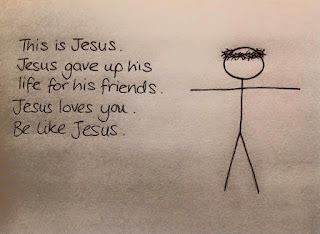 This is Jesus.
Jesus gave up his
life for his friends.
Jesus loves you.
Be like Jesus.